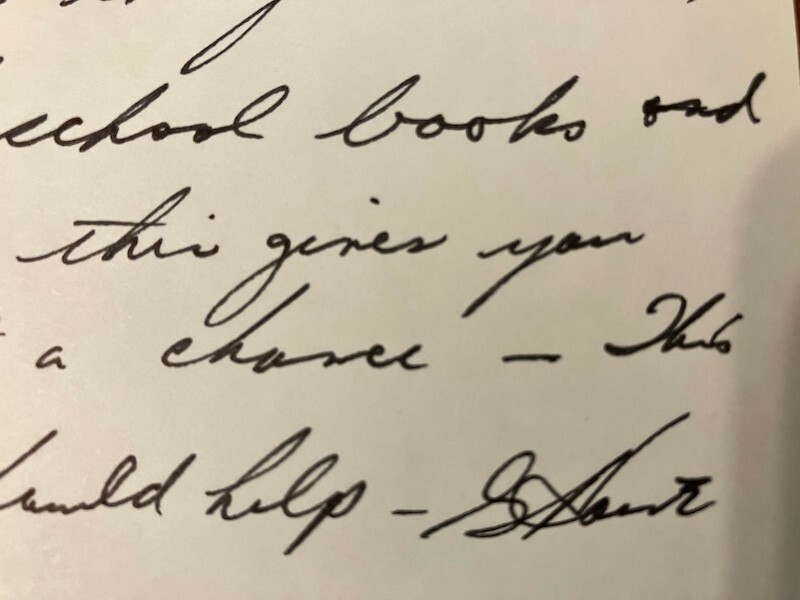 school books and
this gives you
a chance – This
would help –